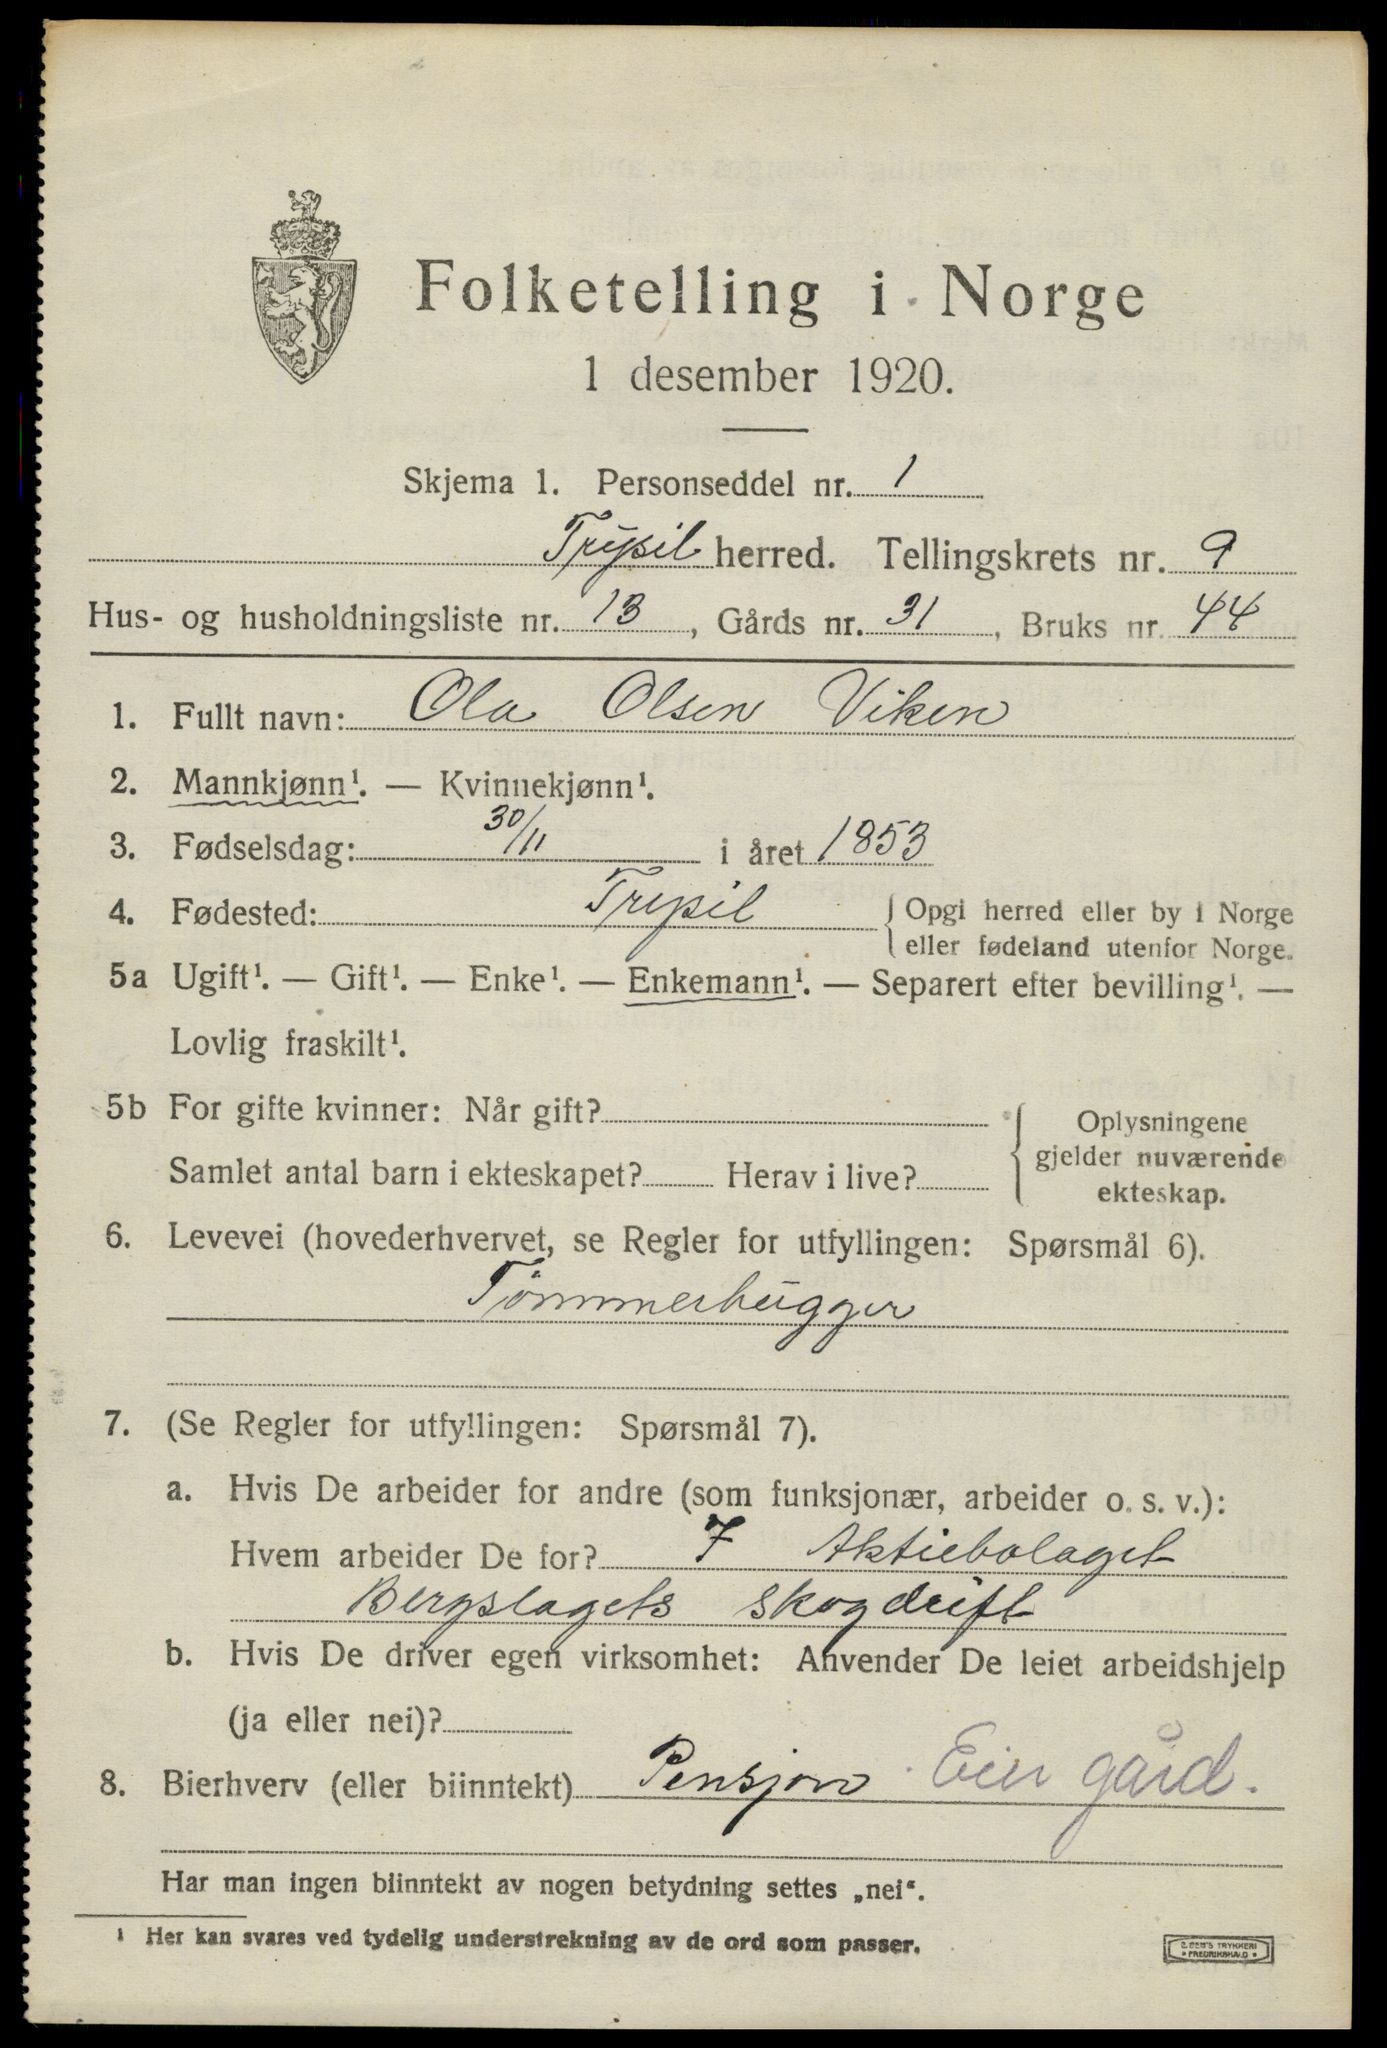 Folketelling i Norge
1 desember 1920.
Skjema 1. Personseddel nr. 1
Trysil herred. Tellingskrets nr. 9
Hus- og husholdningsliste nr. 13, Gårds nr. 31, Bruks nr. 44
1. Fullt navn: Ola Olsen Viken
2. Mannkjønn¹. — Kvinnekjønn¹.
3. Fødselsdag: 30/11 i året 1853
4. Fødested: Trysil { Opgi herred eller by i Norge
eller fødeland utenfor Norge.
5a Ugift¹. — Gift¹. — Enke¹. — Enkemann¹. — Separert efter bevilling¹. —
Lovlig fraskilt¹.
5b For gifte kvinner: Når gift?
Samlet antal barn i ekteskapet? Herav i live?
Oplysningene
gjelder nuværende
ekteskap.
6. Levevei (hovederhvervet, se Regler for utfyllingen: Spørsmål 6).
Tømmerhugger
7. (Se Regler for utfyllingen: Spørsmål 7).
a. Hvis De arbeider for andre (som funksjonær, arbeider o. s. v.):
Hvem arbeider De for? Aktiebolaget
Bergslagets skogdrift
b. Hvis De driver egen virksomhet: Anvender De leiet arbeidshjelp
(ja eller nei)?
8. Bierhverv (eller biinntekt) Pensjon Eier gård.
Har man ingen biinntekt av nogen betydning settes „nei“.
¹ Her kan svares ved tydelig understrekning av de ord som passer.